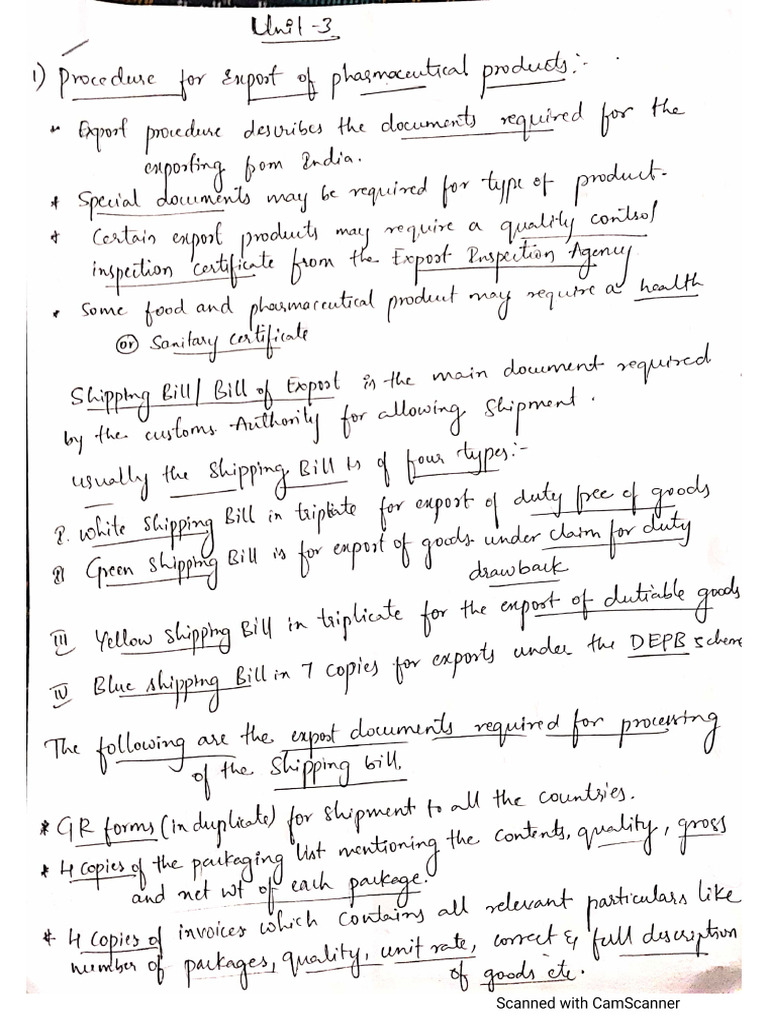 Unit-3
1) Procedure for Export of pharmaceutical products:-
* Export procedure describes the documents required for the
exporting from India.
* Special documents may be required for type of product.
* Certain export products may require a quality control
inspection certificate from the Export Inspection Agency
* Some food and pharmaceutical product may require a health
(or) Sanitary certificate
Shipping Bill/ Bill of Export is the main document required
by the customs Authority for allowing Shipment.
usually the Shipping Bill is of four types:-
I. White Shipping Bill in triplate for export of duty free of goods
II Green Shipping Bill is for export of goods under claim for duty
drawback
III Yellow Shipping Bill in triplicate for the export of dutiable goods
IV Blue Shipping Bill in 7 copies for exports under the DEPB scheme
The following are the export documents required for processing
of the Shipping bill.
* GR forms (in duplicate) for shipment to all the countries.
* 4 copies of the packaging list mentioning the contents, quality, gross
and net wt of each package.
* 4 copies of invoices which contains all relevant particulars like
number of packages, quality, unit rate, correct & full description
of goods etc.
Scanned with CamScanner